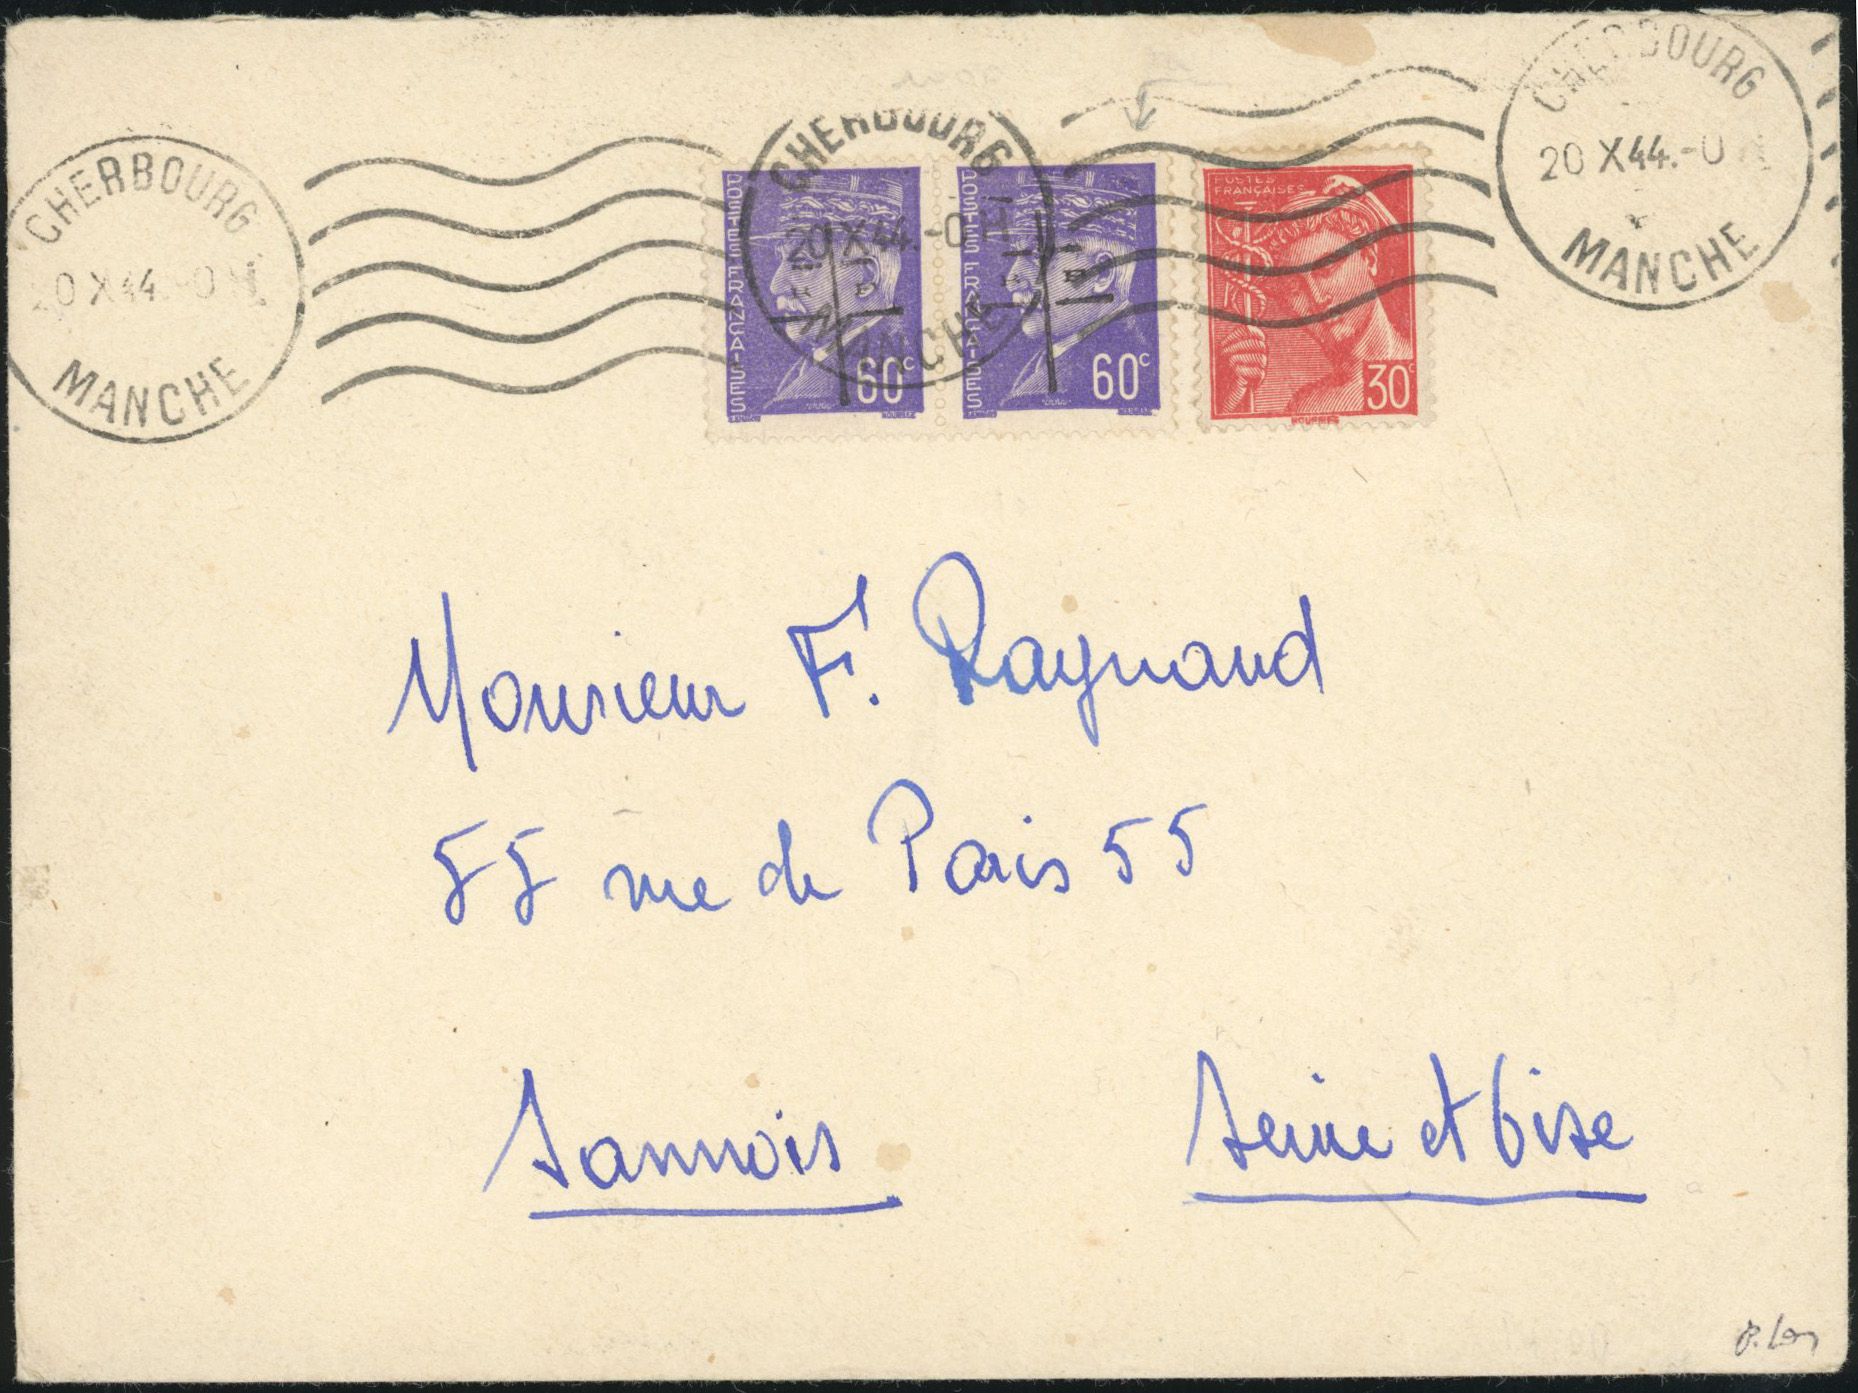 CHERBOURG
0 X 44.-0 H
MANCHE
CHERBOURG
20 X 44.-0 H
MANCHE
CHERBOURG
20 X 44.-0
MANCHE
POSTES FRANÇAISES
60c
POSTES FRANÇAISES
60c
POSTES
FRANÇAISES
30c
Monsieur F. Raynaud
55 rue de Paris 55
Sannois Seine et Oise